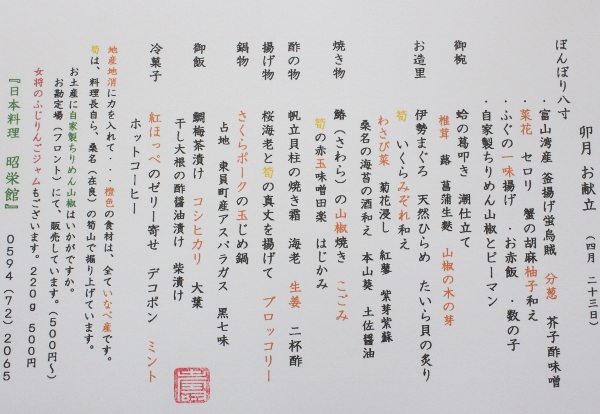 卯月 お献立 (四月 二十三日)
ぼんぼり八寸
・富山湾産 釜揚げ蛍烏賊 分葱 芥子酢味噌
・菜花 セロリ 蟹の胡麻柚子和え
・ふぐの一味揚げ ・お赤飯 ・数の子
・自家製ちりめん山椒とピーマン
御椀 蛤の葛叩き 潮仕立て
椎茸 蕗 菖蒲生麩 山椒の木の芽
お造里 伊勢まぐろ 天然ひらめ たいら貝の炙り
筍 いくらみぞれ和え
わさび菜 菊花浸し 紅蓼 紫芽紫蘇
桑名の海苔の酒和え 本山葵 土佐醤油
焼き物 鰆(さわら)の山椒焼き こごみ
筍の赤玉味噌田楽 はじかみ
酢の物 帆立貝柱の焼き霜 海老 生姜 二杯酢
揚げ物 桜海老と筍の真丈を揚げて ブロッコリー
鍋物 さくらポークの玉じめ鍋
占地 東員町産アスパラガス 黒七味
御飯 鯛梅茶漬け コシヒカリ 大葉
干し大根の酢醤油漬け 柴漬け
冷菓子 紅ほっぺのゼリー寄せ デコポン ミント
ホットコーヒー
地産地消に力を入れて・・・橙色の食材は、全ていなべ産です。
筍は、料理長自ら、桑名(在良)の筍山で掘り上げています。
お土産に自家製ちりめん山椒はいかがですか。
お勘定場(フロント)にて、販売しています。(500円~)
女将のふじりんごジャムもございます。220g 500円
『日本料理 昭栄館』 0594(72)2065
壽